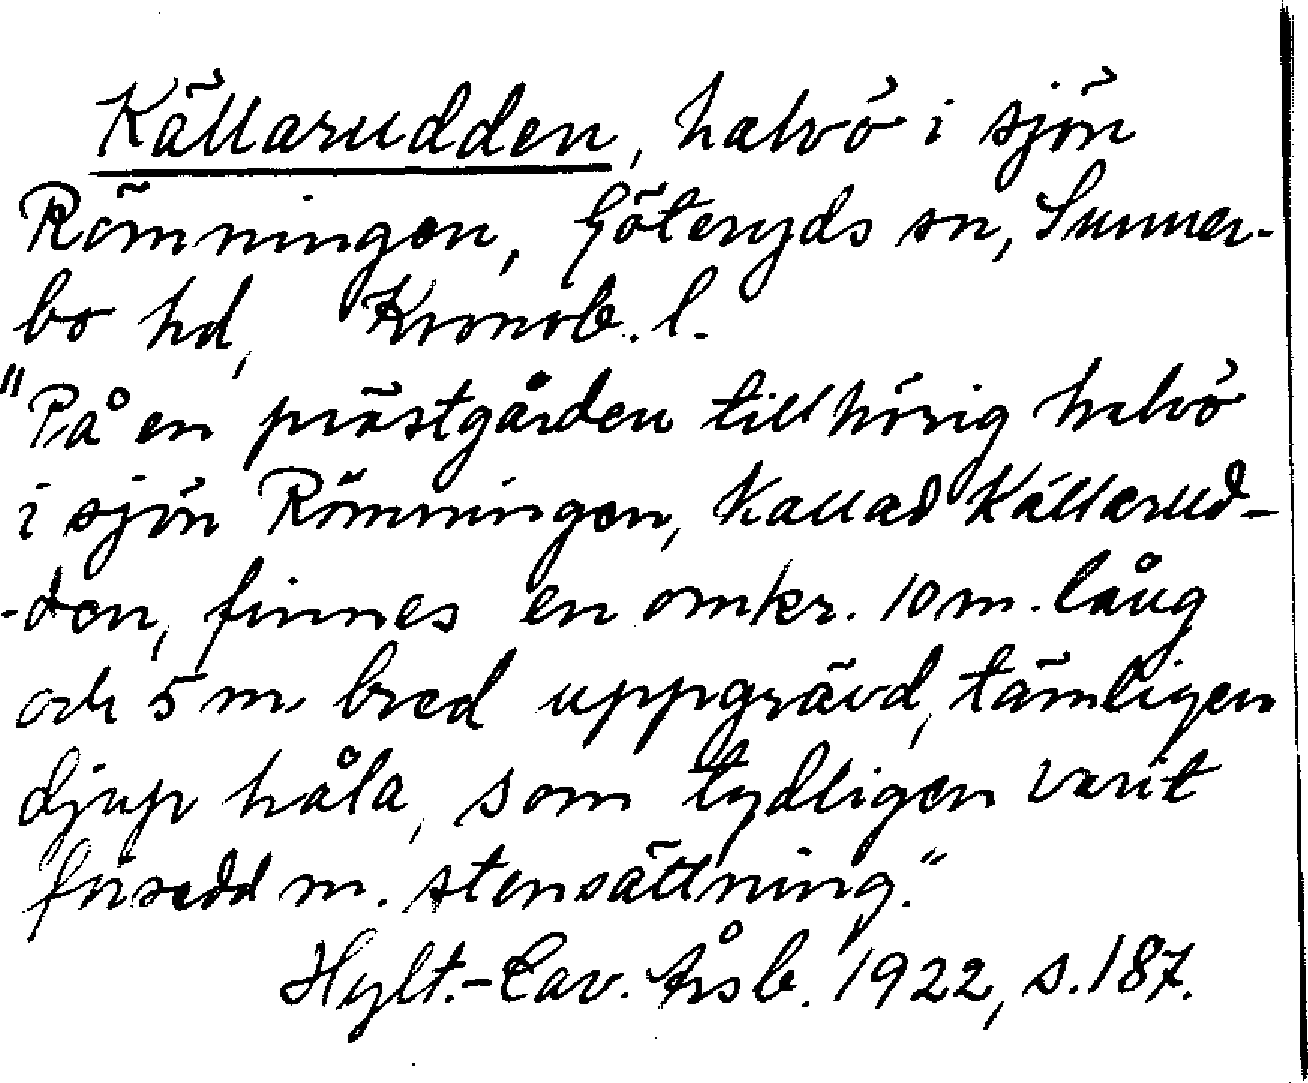 Källarudden, halvö i sjön
Römningen, Göteryds sn, Sunner-
bo hd, Kronob. l.
"På en prästgården tillhörig halvö
i sjön Römningen, kallad Källarud-
-den, finnes en omkr. 10 m. lång
och 5 m bred uppgrävd, tämligen
djup håla, som tydligen varit
försedd m. stensättning."
Hylt.-Cav. Årsb. 1922, s. 187.